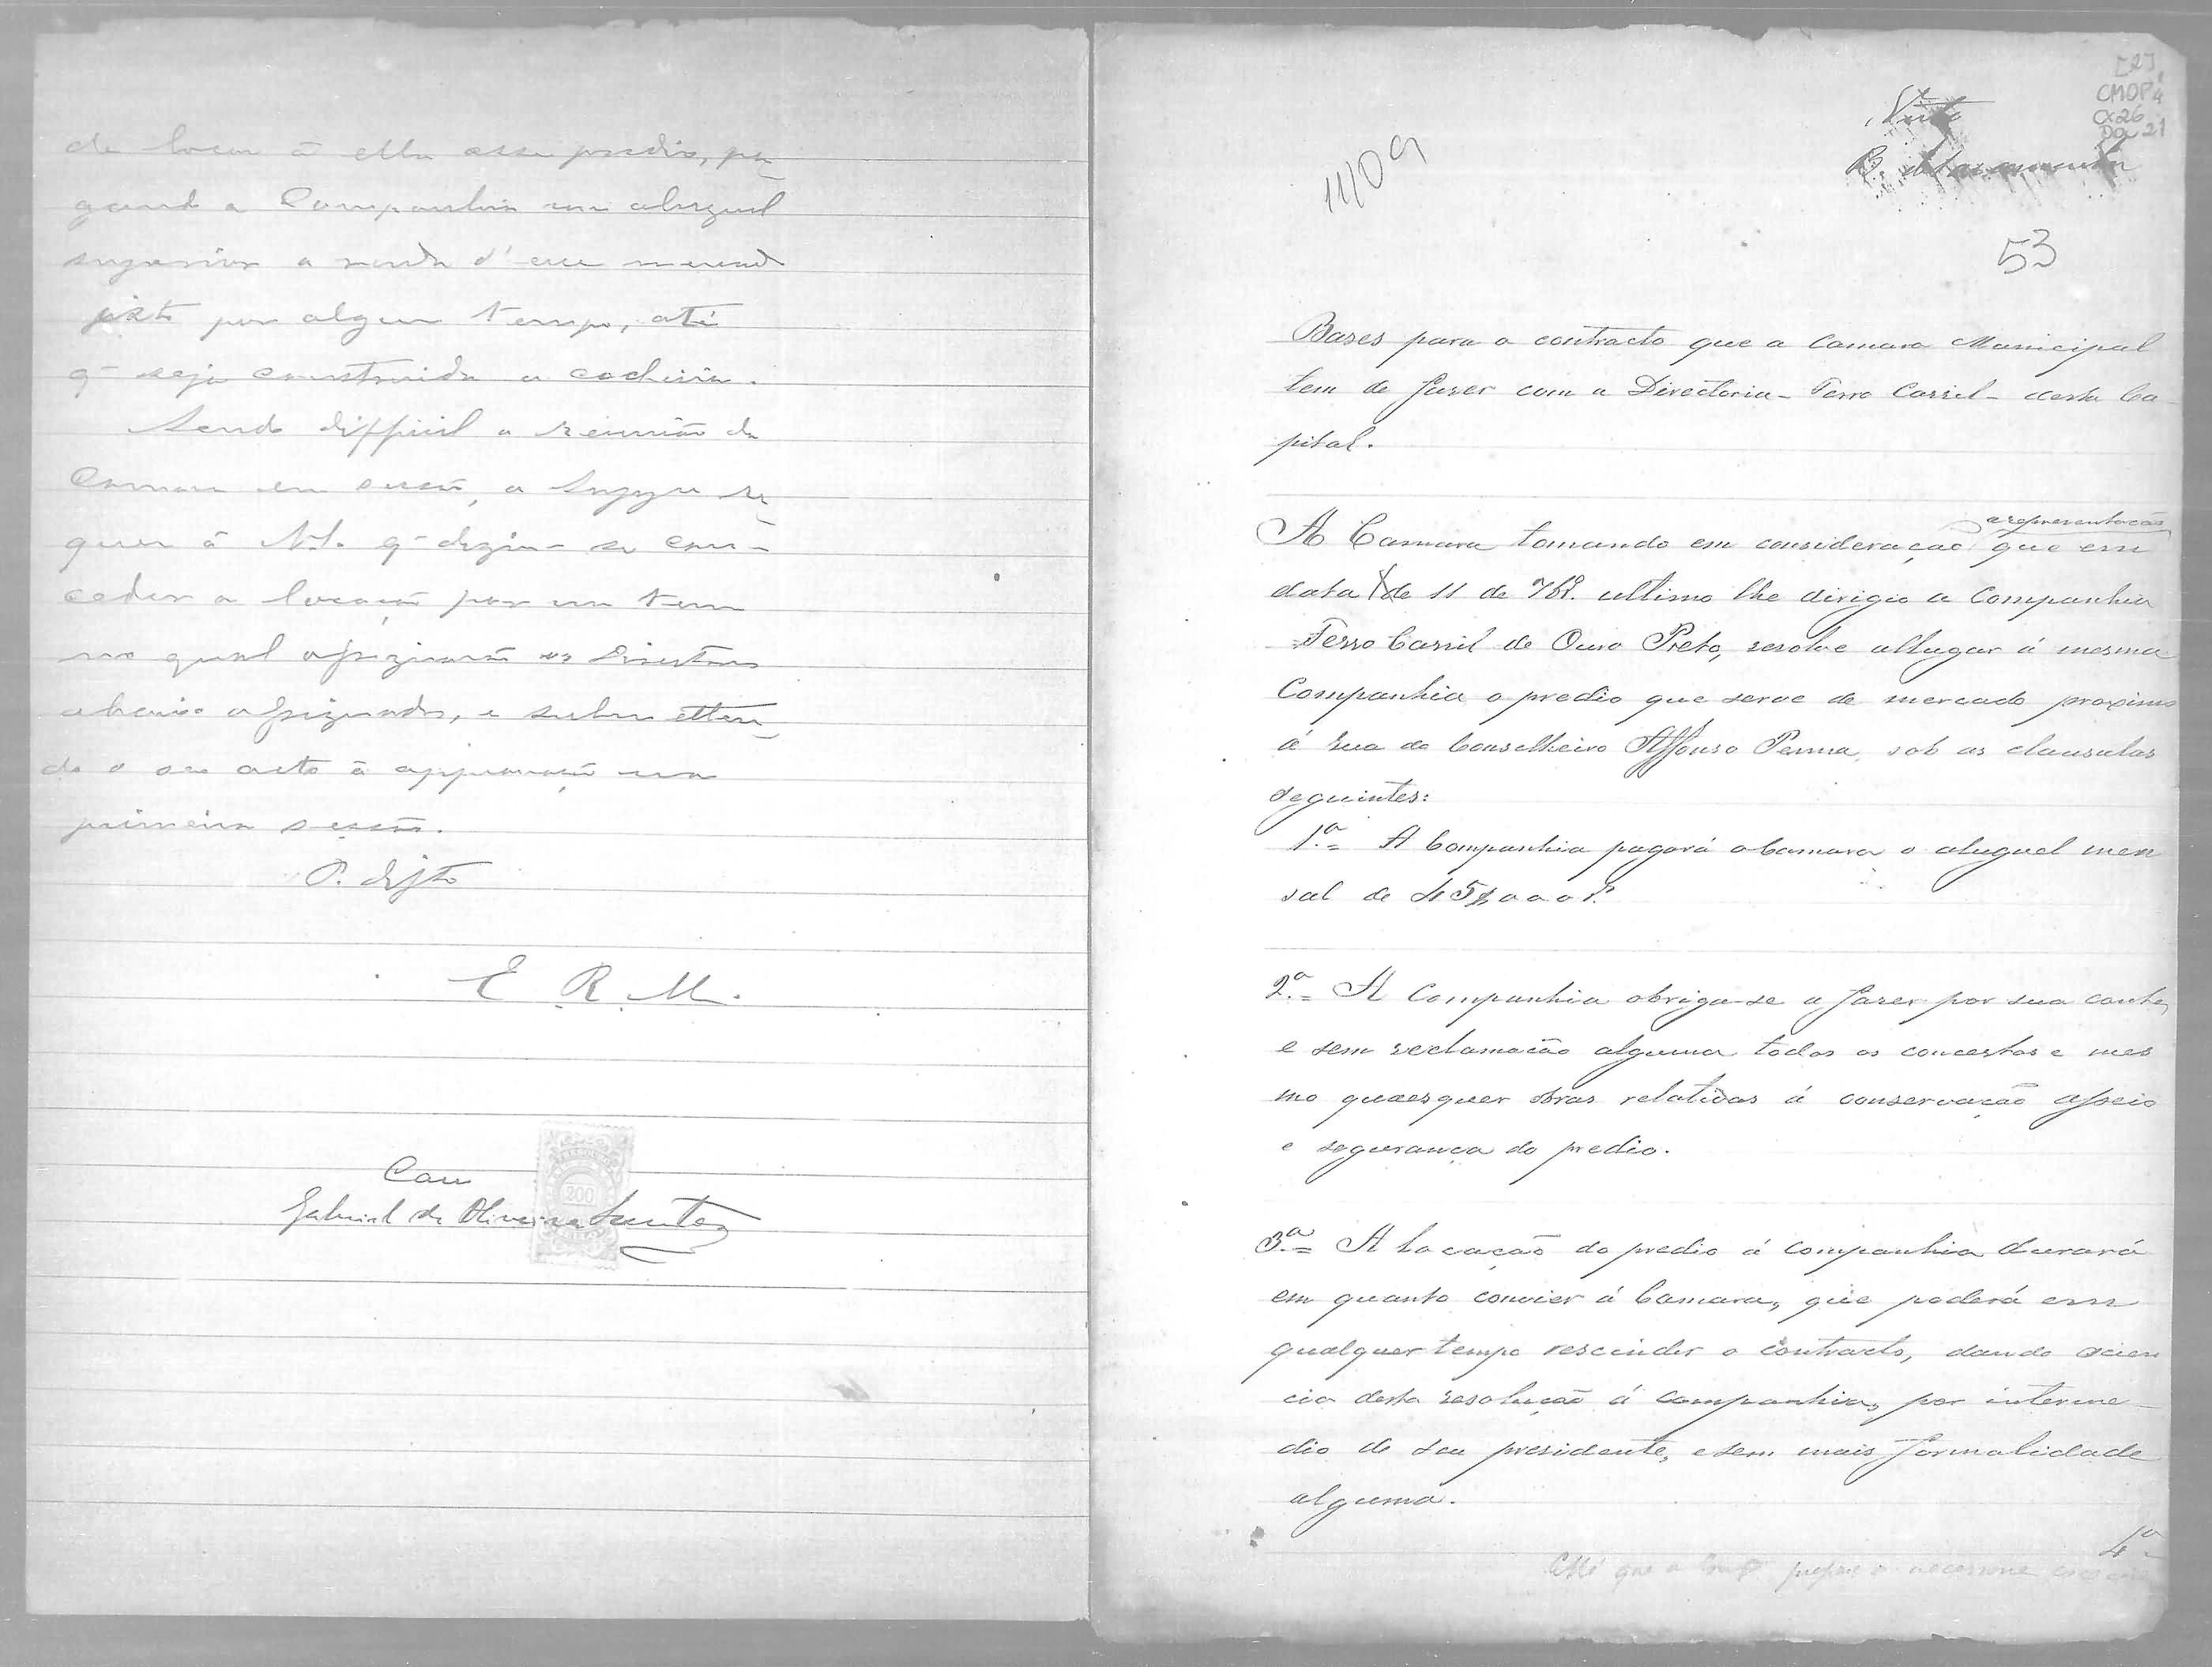 de locar á ella esse predio, pa-
gando a Companhia um aluguel
superior a renda d'esse mercado
isto por algum tempo, até
q̃ seja construida a cocheira.
Sendo difficil a reunião da
Camara em sessão, a Suppe re-
quer á V. S. q̃ digne-se con-
ceder a locação por um termo
no qual assignarão os Directores
abaixo assignados, e submetten-
do o seu acto á approvação na
primeira sessão.
P. dfto
E. R. M.
Cou
Gabriel de Oliveira Santos
200
[2]
CMOP
CX26
Doc 21
11/09
Visto
B.
53
Bases para o contracto que a Camara Municipal
tem de fazer com a Directoria - Ferro Carril - desta Ca-
pital.
a representação
A Camara tomando em consideração que em
data de 11 de 7br. ultimo lhe dirigio a Companhia
Ferro Carril de Ouro Preto, resolve allugar á mesma
Companhia o predio que serve de mercado proximo
á rua do Conselheiro Affonso Penna, sob as clausulas
seguintes:
1.ª A Companhia pagará a Camara o aluguel men
sal de 45$000 r.
2.ª A Companhia obriga-se a fazer por sua conta,
e sem reclamação alguma todos os concertos e mes
mo quaesquer obras relativas á conservação asseio
e segurança do predio.
3.ª A locação do predio á companhia durará
em quanto convier á Camara, que poderá em
qualquer tempo rescindir o contracto, dando scien
cia desta resolução á companhia, por interme-
dio de seu presidente, e sem mais formalidade
alguma.
4ª
que a